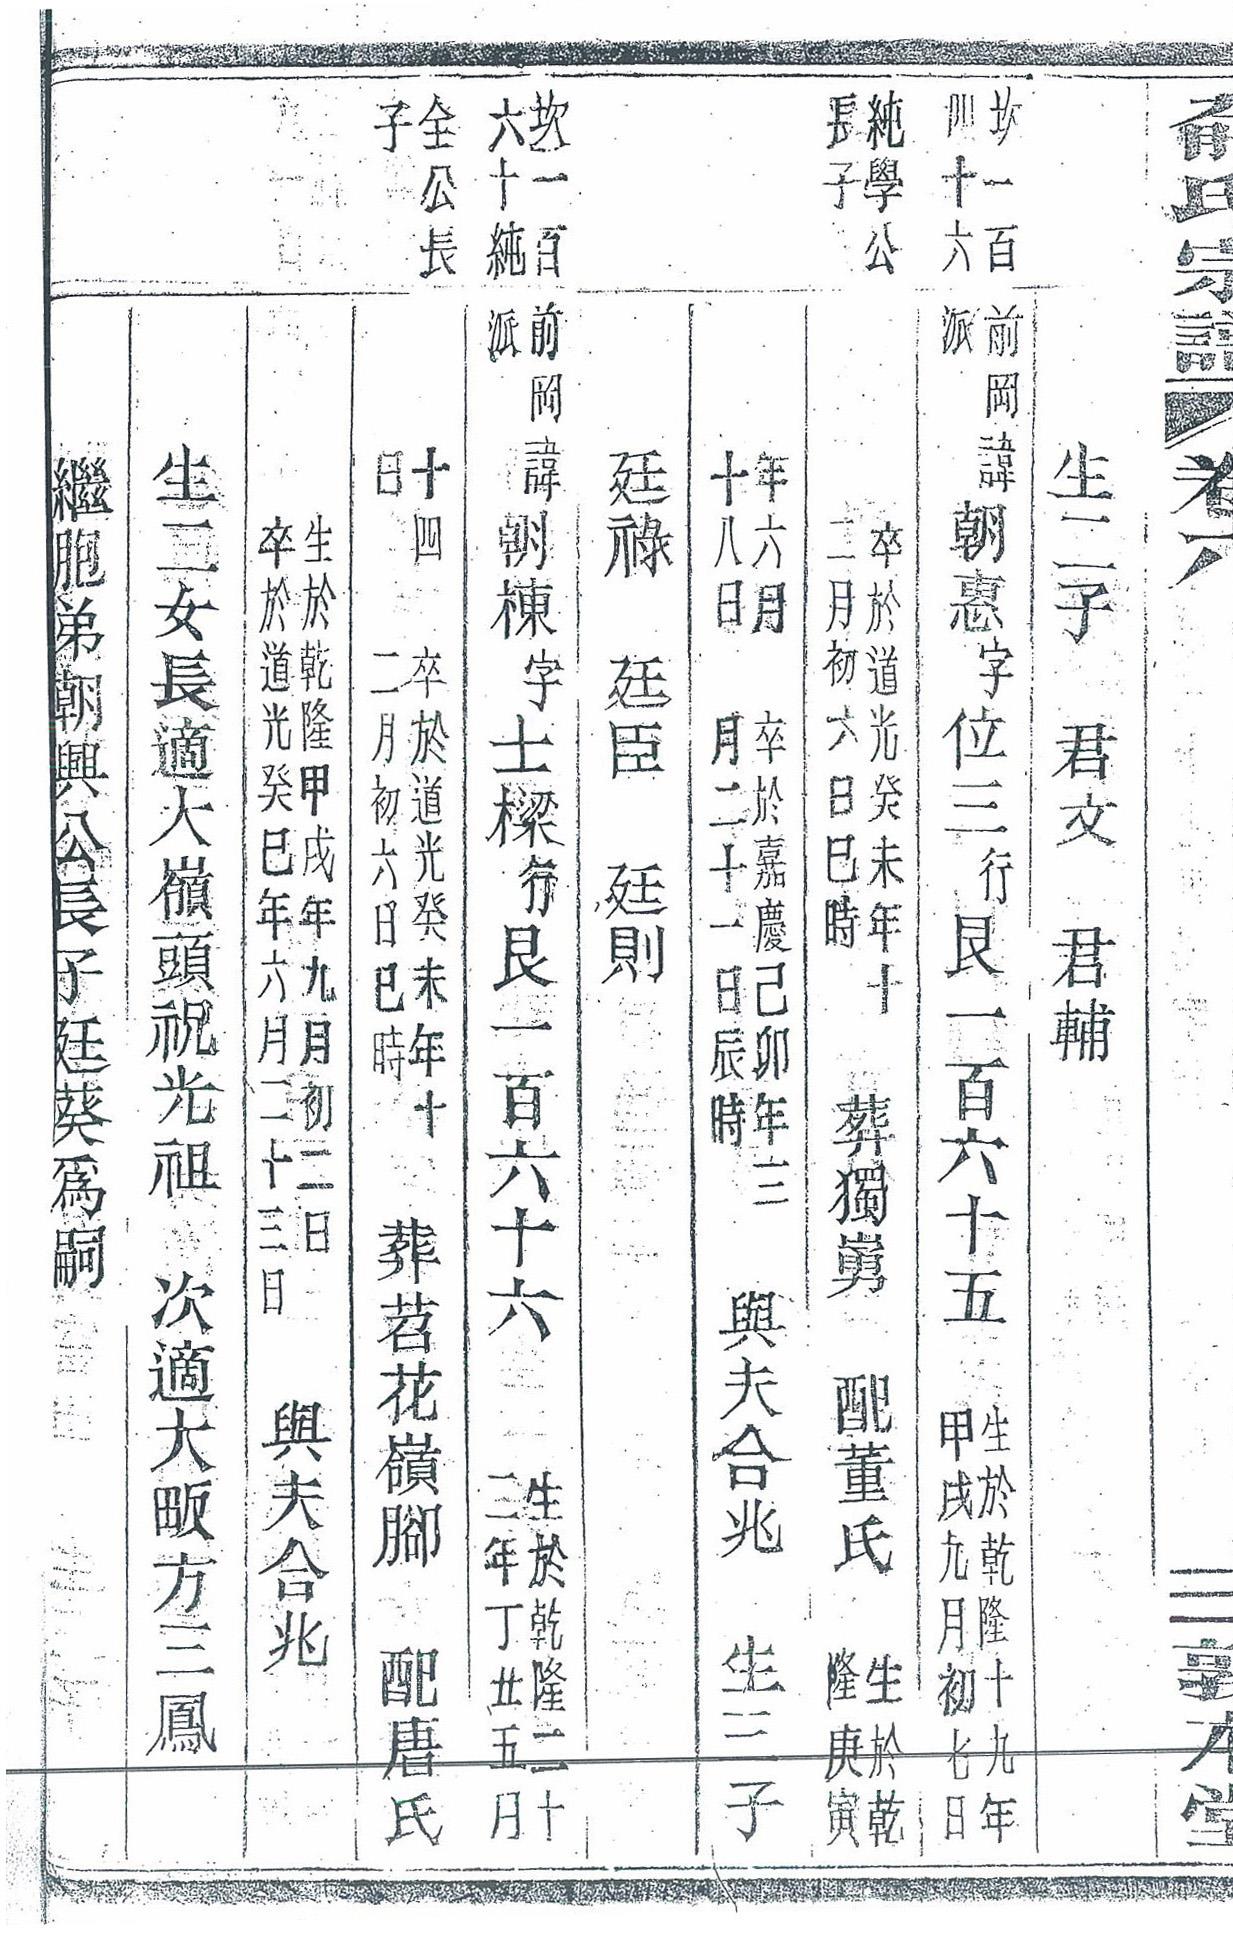 氏宗譜 卷六 三 敦本堂
生二子 君文 君輔
坎一百四十六
前岡派
諱朝惠字位三行艮一百六十五 生於乾隆十九年甲戌九月初七日
純學公長子
卒於道光癸未年十二月初六日巳時 葬獨嶲 配董氏 生於乾隆庚寅
年六月十八日 卒於嘉慶己卯年三月二十一日辰時 與夫合兆 生三子
廷祿 廷臣 廷則
坎一百六十純全公長子
前岡派
諱朝棟字士樑行艮一百六十六 生於乾隆二十二年丁丑五月
十四日 卒於道光癸未年十二月初六日巳時 葬苕花嶺腳 配唐氏
生於乾隆甲戌年九月初二日卒於道光癸巳年六月二十三日 與夫合兆
生二女長適大嶺頭祝光祖 次適大畈方三鳳
繼胞弟朝興公長子廷葵爲嗣